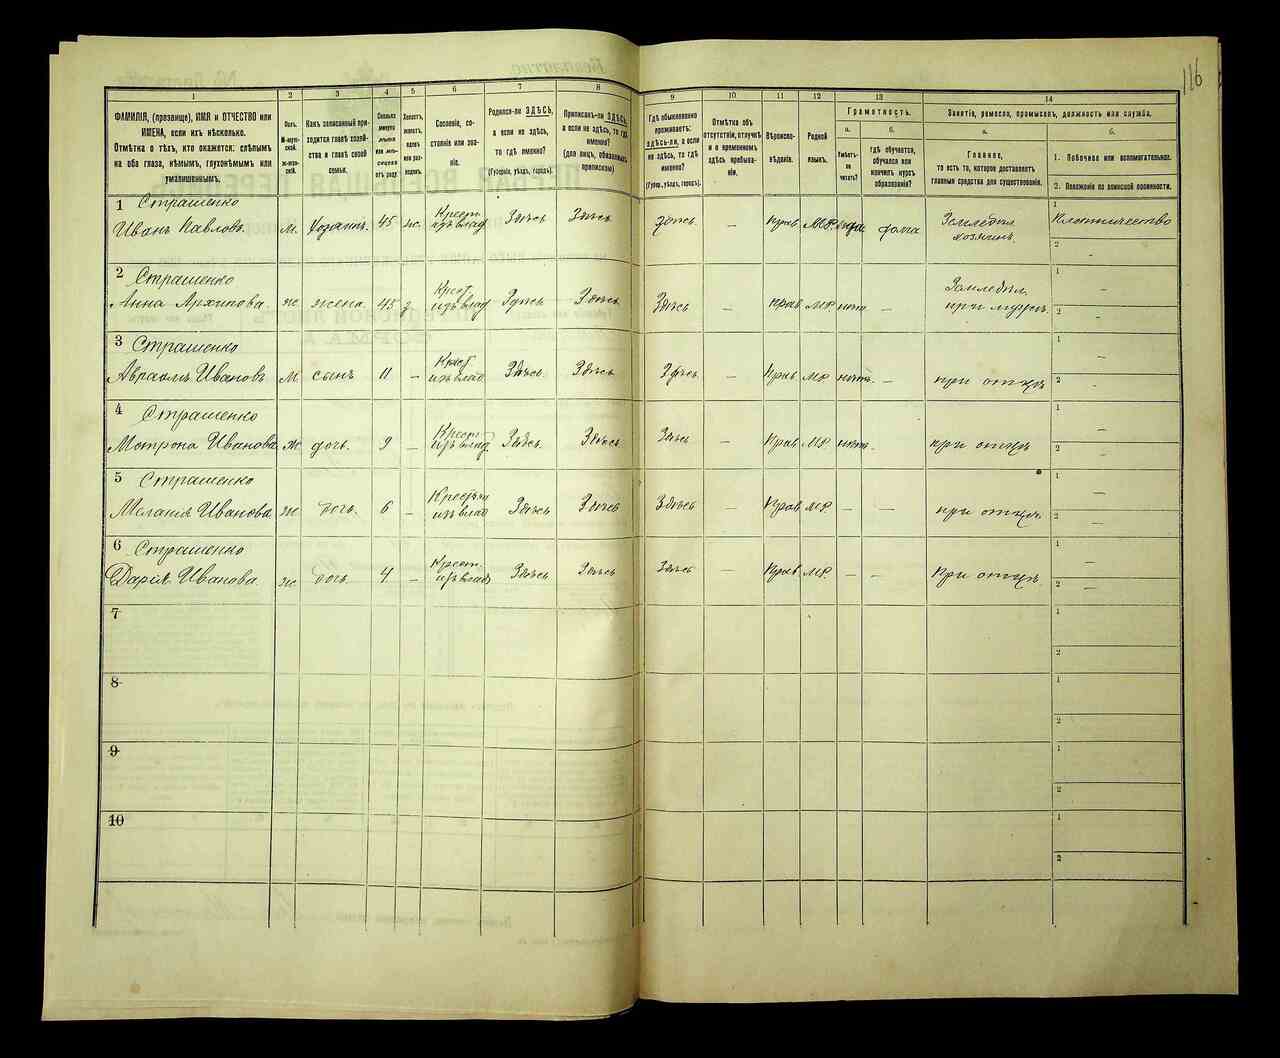 116
1
2
3
4
5
6
7
8
9
10
11
12
13
14
ФАМИЛІЯ, (прозвище), ИМЯ и ОТЧЕСТВО или
ИМЕНА, если ихъ нѣсколько.
Отмѣтка о тѣхъ, кто окажется: слѣпымъ
на оба глаза, нѣмымъ, глухонѣмымъ или
умалишеннымъ.
Полъ.
М-мужской.
ж-женскій.
Какъ записанный при-
ходится главѣ хозяй-
ства и главѣ своей
семьи.
Сколько
минуло
лѣтъ
или мѣ-
сяцевъ
отъ роду
Холостъ,
женатъ,
вдовъ
или раз-
веденъ.
Сословіе, со-
стояніе или зва-
ніе.
Родился-ли ЗДѢСЬ,
а если не здѣсь,
то гдѣ именно?
(Губернія, уѣздъ, городъ).
Приписанъ-ли ЗДѢСЬ,
а если не здѣсь, то гдѣ
именно?
(для лицъ, обязанныхъ
припискою)
Гдѣ обыкновенно
проживаетъ:
здѣсь-ли, а если
не здѣсь, то гдѣ
именно?
(Губер., уѣздъ, городъ).
Отмѣтка объ
отсутствіи, отлучкѣ
и о временномъ
здѣсь пребыва-
ніи.
Вѣроиспо-
вѣданіе.
Родной
языкъ.
Грамотность.
а.
б.
Умѣетъ-
ли
читать?
гдѣ обучается,
обучался или
кончилъ курсъ
образованія?
Занятіе, ремесло, промыселъ, должность или служба.
а.
б.
Главное,
то есть то, которое доставляетъ
главныя средства для существованія.
1. Побочное или вспомогательное.
2. Положеніе по воинской повинности.
1 Страшенко
Иванъ Павловъ м. хозяинъ 45 ж. Крест. изъ влад Здѣсь Здѣсь Здѣсь — Прав М.Р. дома Земледѣл. хозяинъ. 1 Плотничество
2 -
2 Страшенко
Анна Архипова ж жена 45 з Крест. изъ влад Здѣсь Здѣсь Здѣсь — Прав М.Р. нѣтъ - Земледѣл. при мужѣ 1 —
2 —
3 Страшенко
Авраамъ Ивановъ М сынъ 11 — Крест изъ влад Здѣсь Здѣсь Здѣсь — Прав М.Р. нѣтъ. - при отцѣ 1 —
2 -
4 Страшенко
Мотрона Иванова ж дочь. 9 — Крест. изъ влад. Здѣсь Здѣсь Здѣсь — Прав М.Р. нѣтъ. при отцѣ 1 —
2 —
5 Страшенко
Меланія Иванова ж дочь. 6 - изъ влад Здѣсь Здѣсь Здѣсь — Прав М.Р. — — при отцѣ. 1 —
2 —
6 Страшенко
Дарія Иванова ж. дочь. 4 — Крест. изъ влад Здѣсь Здѣсь Здѣсь — Прав М.Р. — - При отцѣ. 1 —
2 —
7 1
2
8 1
2
9 1
2
10 1
2